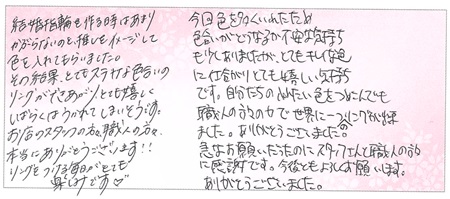 結婚指輪を作る時はあまり
かぶらないのと、推しをイメージして
色を入れてもらいました。
その結果、とてもステキな色合いの
リングができあがり、とても嬉しく
しばらくはうかれてしまいそうです。
お店のスタッフの方、職人の方々、
本当にありがとうございます!!
リングをつける毎日がとても
楽しみです♡
今回色を多くいれたため
色合いがどうなるか不安な気持ち
もう少しありましたが、とてもキレイな色
に仕上がりとても嬉しい気持ち
です。自分たちの好みたい色をつめこんでも
職人の方の力で世界に一つのリングが出来
ました。ありがとうございました。
急なお願いだったのにスタッフさんと職人の方
に感謝です。今後ともよろしくお願いします。
ありがとうございました。